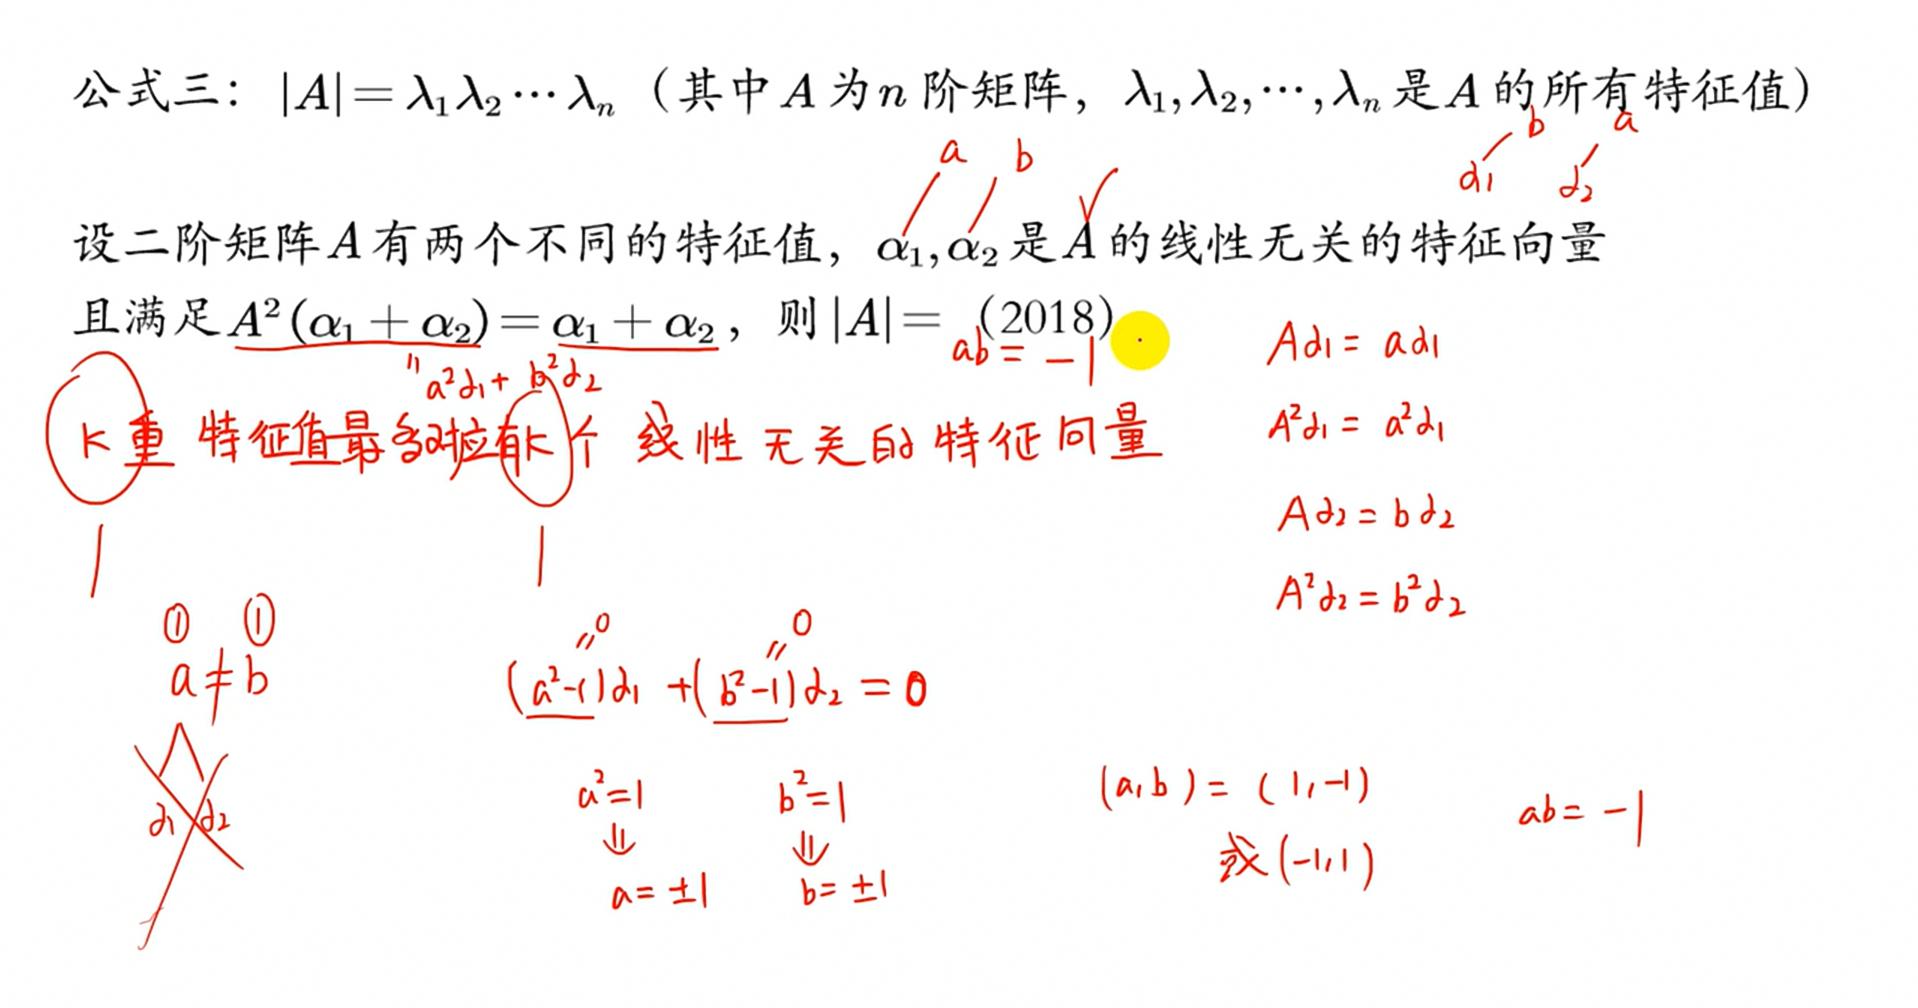 公式三：|A| = λ₁λ₂⋯λₙ（其中 A 为 n 阶矩阵，λ₁,λ₂,⋯,λₙ 是 A 的所有特征值）
b a
a b
α₁ α₂
设二阶矩阵 A 有两个不同的特征值，α₁,α₂ 是 A 的线性无关的特征向量
且满足 A²(α₁ + α₂) = α₁ + α₂，则 |A| = （2018）
ab = -1
Aα₁ = aα₁
" a²α₁ + b²α₂
K重 特征值最多对应有K个 线性无关的特征向量
A²α₁ = a²α₁
Aα₂ = bα₂
1 1
A²α₂ = b²α₂
① ①
0 0
a ≠ b
(a²-1)α₁ + (b²-1)α₂ = 0
α₁ α₂
a²=1 b²=1
(a,b) = (1,-1)
ab = -1
或(-1,1)
a = ±1 b = ±1